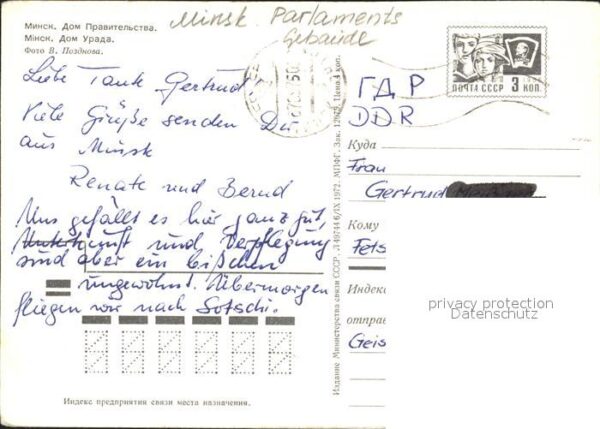 Минск. Дом Правительства.
Мінск. Дом Урада.
Фото В. Позднова.
Minsk. Parlaments
Gebäude
Liebe Tante Gertrud!
Viele Grüße senden Dir
aus Minsk
Renate und Bernd
Uns gefällt es hier ganz gut,
Unterkunft und Verpflegung
sind aber ein bißchen
ungewohnt. Übermorgen
fliegen wir nach Sotschi.
Индекс предприятия связи места назначения.
Издание Министерства связи СССР. 149744 6/IX 1972. МПФГ. Зак. 12972. Цена 4 коп.
ПОЧТА СССР 3 КОП.
ГДР
DDR
Куда
Frau
Gertrud
Кому
Индекс
отправ
Geis
privacy protection
Datenschutz